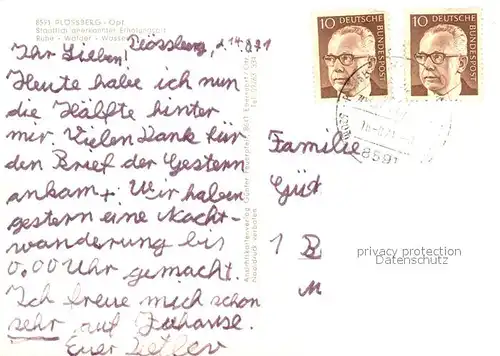 8591 PLÖSSBERG - Opf.
Staatlich anerkannter Erholungsort
Ruhe - Wälder - Wasser
Plössberg, d. 14.8.71
Ihr Lieben!
Heute habe ich nun
die Hälfte hinter
mir. Vielen Dank für
den Brief der Gestern
ankam. Wir haben
gestern eine Nacht-
wanderung bis
0.00 Uhr gemacht.
Ich freue mich schon
sehr auf Zuhause.
Euer Detlev
Ansichtskartenverlag Günter
Nachdruck verboten
10 DEUTSCHE BUNDESPOST
10 DEUTSCHE BUNDESPOST
8591
Familie
1 B
M
privacy protection
Datenschutz